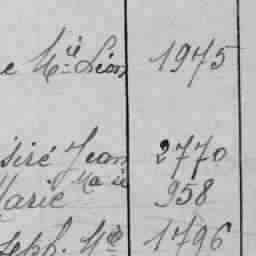 e Mie Léon 1975
siré Jean 2770
Marie Marie 958
seph. Mie 1796